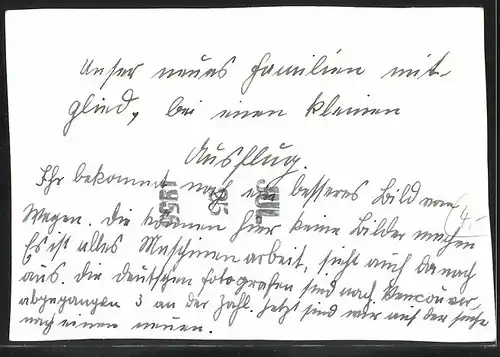 Unser neues Familien mit-
glied, bei einen kleinen
Ausflug.
Ihr bekommt noch ein besseres Bild vom
Wagen. Die können hier keine Bilder machen
Es ist alles Maschinenarbeit, sieht auch danach
aus. Die deutschen Fotografen sind nach Vencouver
abgegangen 3 an der Zahl. Jetzt sind wir auf der suche
nach einen neuen.
JUL
26
1955
4.-